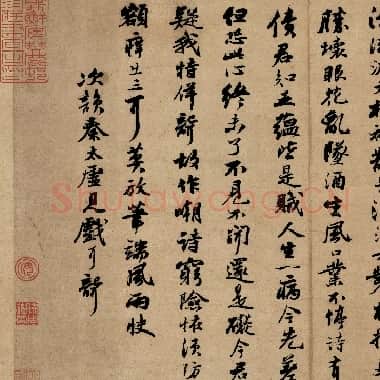 勝壞眼花亂墜酒生風口業不停詩有
債君知五蘊皆是賊人生一病今先差
但恐此心終未了不見不聞還是礙今君
疑我特佯聾故作嘲詩窮險怪須防
額癢出三耳莫放筆端風雨快
次韻秦太虛見戲耳聾